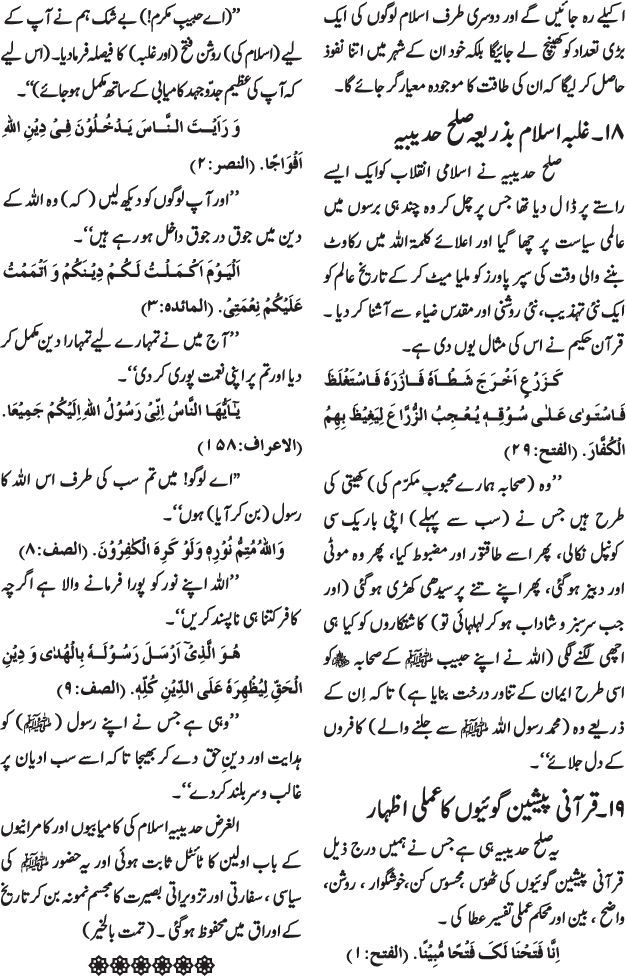 اکیلے رہ جائیں گے اور دوسری طرف اسلام لوگوں کی ایک
بڑی تعداد کو کھینچ لے جائیگا بلکہ خود ان کے شہر میں اتنا نفوذ
حاصل کر لیگا کہ ان کی طاقت کا موجودہ معیار گر جائے گا۔
۱۸۔ غلبہ اسلام بذریعہ صلح حدیبیہ
صلح حدیبیہ نے اسلامی انقلاب کو ایک ایسے
راستے پر ڈال دیا تھا جس پر چل کر وہ چند ہی برسوں میں
عالمی سیاست پر چھا گیا اور اعلائے کلمۃ اللہ میں رکاوٹ
بننے والی وقت کی سپر پاورز کو ملیا میٹ کر کے تاریخ عالم کو
ایک نئی تہذیب، نئی روشنی اور مقدس ضیاء سے آشنا کر دیا ۔
قرآن حکیم نے اس کی مثال یوں دی ہے۔
کَزَرْعٍ اَخْرَجَ شَطْاَهٗ فَاٰزَرَهٗ فَاسْتَغْلَظَ
فَاسْتَوٰی عَلٰی سُوْقِهٖ یُعْجِبُ الزُّرَّاعَ لِیَغِیْظَ بِهِمُ
الْکُفَّارَ. (الفتح:۲۹)
’’وہ (صحابہ ہمارے محبوبِ مکرّم کی) کھیتی کی
طرح ہیں جس نے (سب سے پہلے) اپنی باریک سی
کونپل نکالی، پھر اسے طاقتور اور مضبوط کیا، پھر وہ موٹی
اور دبیز ہوگئی، پھر اپنے تنے پر سیدھی کھڑی ہوگئی (اور
جب سرسبز و شاداب ہو کر لہلہائی تو) کاشتکاروں کو کیا ہی
اچھی لگنے لگی (اللہ نے اپنے حبیب ﷺ کے صحابہ ؓ کو
اسی طرح ایمان کے تناور درخت بنایا ہے) تاکہ اِن کے
ذریعے وہ (محمد رسول اللہ ﷺ سے جلنے والے) کافروں
کے دل جلائے‘‘۔
۱۹۔ قرآنی پیشین گوئیوں کا عملی اظہار
یہ صلح حدیبیہ ہی ہے جس نے ہمیں درج ذیل
قرآنی پیشین گوئیوں کی ٹھوس، محسوس کن، خوشگوار ، روشن،
واضح ، بین اور محکم عملی تفسیر عطا کی ۔
اِنَّا فَتَحْنَا لَکَ فَتْحًا مُّبِیْنًا. (الفتح:۱)
’’(اے حبیبِ مکرم!) بے شک ہم نے آپ کے
لیے (اسلام کی) روشن فتح (اور غلبہ) کا فیصلہ فرمادیا۔ (اس لیے
کہ آپ کی عظیم جدّوجہد کامیابی کے ساتھ مکمل ہو جائے)‘‘۔
وَ رَاَیْتَ النَّاسَ یَدْخُلُوْنَ فِیْ دِیْنِ اللهِ
اَفْوَاجًا. (النصر:۲)
’’اور آپ لوگوں کو دیکھ لیں (کہ) وہ اللہ کے
دین میں جوق در جوق داخل ہو رہے ہیں‘‘۔
اَلْیَوْمَ اَکْمَلْتُ لَکُمْ دِیْنَکُمْ وَ اَتْمَمْتُ
عَلَیْکُمْ نِعْمَتِیْ. (المائدہ:۳)
’’آج میں نے تمہارے لیے تمہارا دین مکمل کر
دیا اور تم پر اپنی نعمت پوری کر دی‘‘۔
یٰاَیُّهَا النَّاسُ اِنِّیْ رَسُوْلُ اللهِ اِلَیْکُمْ جَمِیْعَا.
(الاعراف:۱۵۸)
’’اے لوگو! میں تم سب کی طرف اس اللہ کا
رسول (بن کر آیا) ہوں‘‘۔
وَاللهُ مُتِمُّ نُوْرِهٖ وَلَوْ کَرِهَ الْکٰفِرُوْنَ. (الصف:۸)
’’اللہ اپنے نور کو پورا فرمانے والا ہے اگرچہ
کافر کتنا ہی ناپسند کریں‘‘۔
هُوَ الَّذِیْٓ اَرْسَلَ رَسُوْلَهٗ بِالْهُدٰی وَ دِیْنِ
الْحَقِّ لِیُظْهِرَهٗ عَلَی الدِّیْنِ کُلِّهٖ. (الصف:۹)
’’وہی ہے جس نے اپنے رسول (ﷺ) کو
ہدایت اور دینِ حق دے کر بھیجا تاکہ اسے سب ادیان پر
غالب و سربلند کردے‘‘۔
الغرض حدیبیہ اسلام کی کامیابیوں اور کامرانیوں
کے باب اولین کا ٹائٹل ثابت ہوئی اور یہ حضور ﷺ کی
سیاسی ، سفارتی اور تزویراتی بصیرت کا مجسم نمونہ بن کر تاریخ
کے اوراق میں محفوظ ہوگئی ۔ (تمت بالخیر)